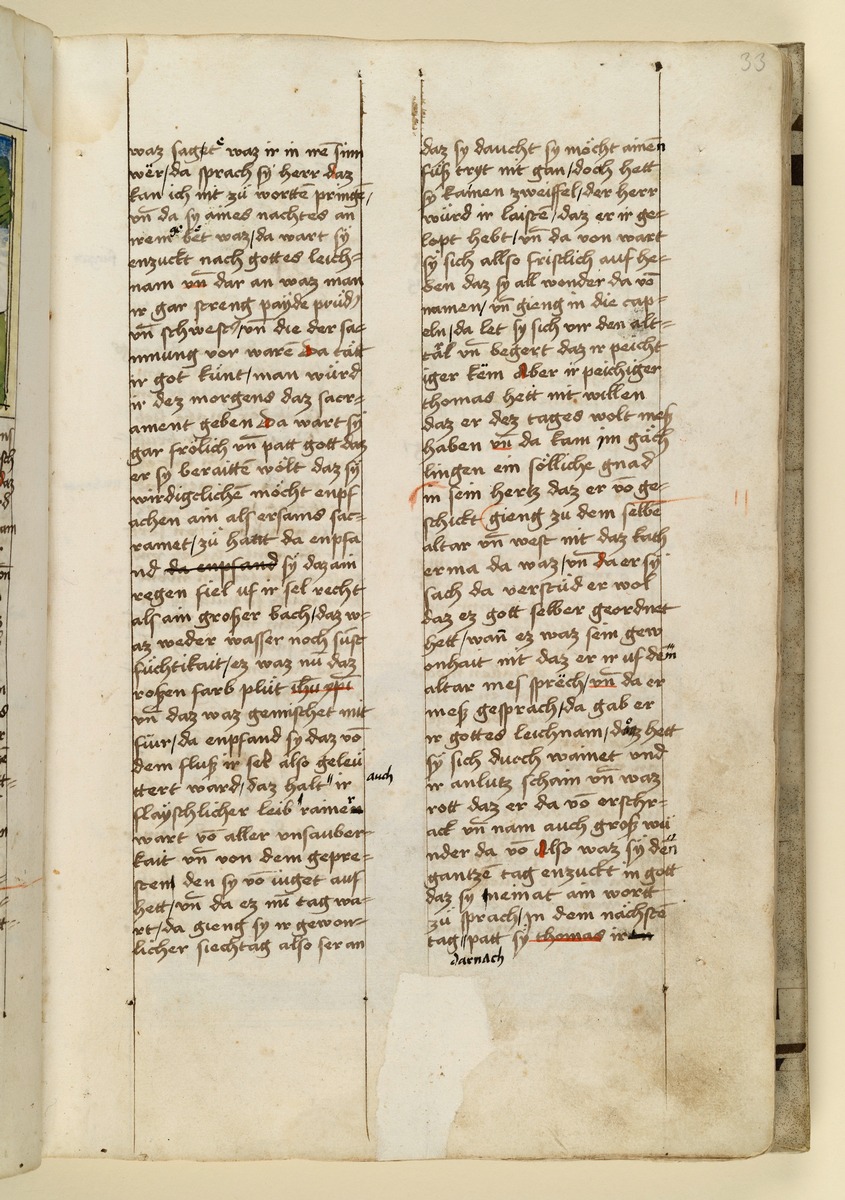 33
waz saget waz ir in irē sinn
wër/da sprach sy herr daz
kan ich nit zü wortten pringē/
vn̄ da sy aines nachtes an
irem bet waz/da wart sy
enzuckt nach gottes leich=
nam vn̄ dar an waz man
ir gar streng payde prüd
vn̄ schwest/vn̄ die der sa=
mnung vor warē Da tätt
ir got künt/man würd
ir dez morgens daz sacr=
ament geben Da wart sy
gar frölich vn̄ patt gott daz
er sy beraittē wölt daz sy
wirdigclichē möcht enpf
achen ain als ersams sac=
ramet/zü hantt da enpfa
nd da enpfand sy daz ain
regen fiel uf ir sel recht
als ain großer bach/daz w=
az weder wasser noch sust
füchtikait/ez waz nū daz
roßen farb plüt ihū xpi
vn̄ daz waz gemischet mit
füur/da enpfand sy daz vō
dem fluß ir sel also geleü
ttert ward/daz halt ir auch
flayschlicher leib rainer
wart vō aller vnsauber=
kait vn̄ von dem gepre=
sten den sy vō iuget auf
hett/vn̄ da ez nū tag wa=
rt/da gieng sy ir gewon=
licher siechtag also ser an
daz sy daucht sy möcht ainen
füß tryt nit gan/doch hett
sy kainen zweiffel/der herr
würd ir laistē/daz er ir ge=
lopt hebt/vn̄ da von wart
sy sich allso fristlich auf he=
den daz sy all wonder da vō
namen/vn̄ gieng in die cap=
eln/da let sy sich vir den alt=
täl vn̄ begert daz ir peicht
iger këm Aber ir peichiger
thomas hett nit willen
daz er dez tages wolt meß
haben vn̄ da kam im gäch
lingen ein sölliche gnad
in sein hertz daz er vō ge=
schickt gieng zu dem selbē
altar vn̄ west nit daz kath
erma da waz/vn̄ da er sy
sach da verstüd er wol
daz ez gott selber geordnet
hett/wan̄ ez waz sein gew
onhait nit daz er ir uf dem
altar mes sprëch/vn̄ da er
meß gesprach/da gab er
ir gottes leichnam/daz hett
sy sich durch wainet vnd
ir anlutz schain vn̄ waz
rott daz er da vō erschr=
ack vn̄ nam auch groß wü
nder da vō Also waz sy den
gantzē tag enzuckt in gott
daz sy neinat ain wortt
zü sprach/in dem nächstē
tag darnach patt sy thomas ir